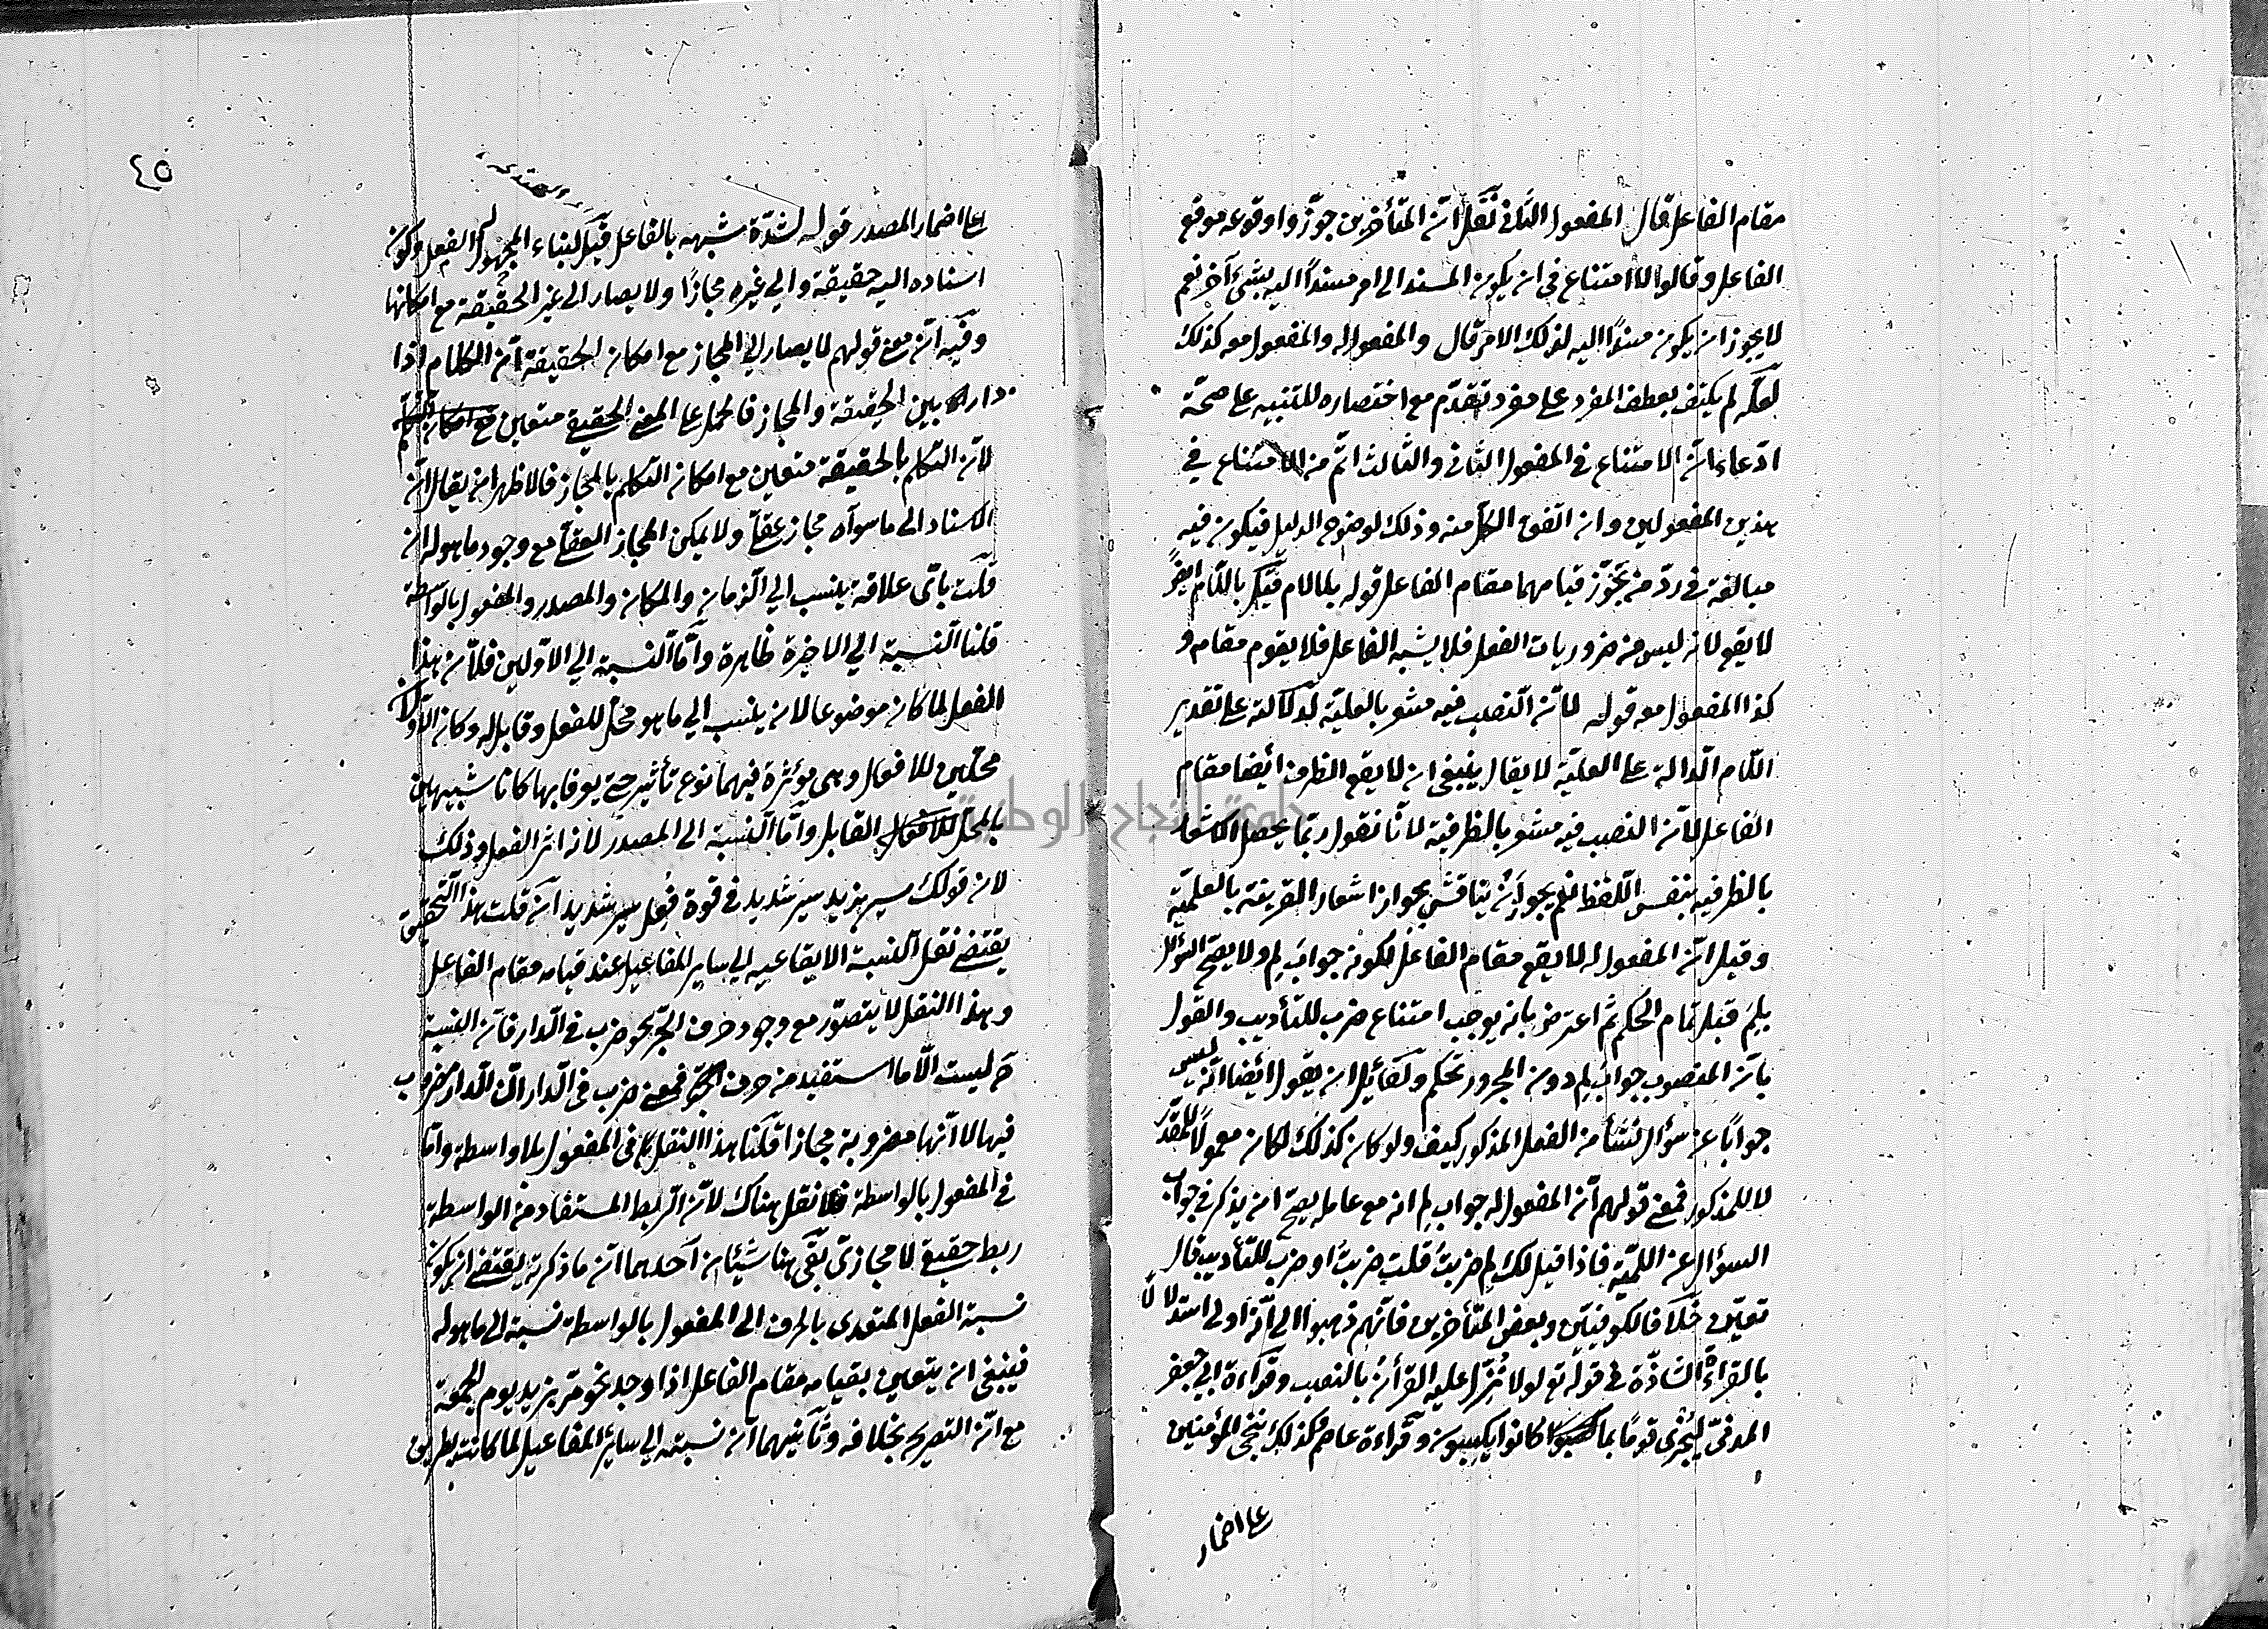 مقام الفاعل قال المفعول الثاني نقل ان المتأخرين جوزوا وقوعه موقع
الفاعل وقالوا لا امتناع في ان يكون المسند الى امر مسندا اليه بشئ آخر نعم
لا يجوز ان يكون مسندا اليه لذلك الامر قال والمفعول له والمفعول معه كذلك
لعله لم يكتف بعطف المفرد على مفرد تقدم مع اختصاره للتنبيه على صحة
ادعاء ان الامتناع في المفعول الثاني والثالث اتم من الامتناع في
هذين المفعولين وان اتفق الكل منه وذلك لوضوح الدليل فيكون فيه
مبالغة في رد من يجوز قيامهما مقام الفاعل قوله بلا لام قيل باللام ايضا
لا يقع لانه ليس من ضروريات الفعل فلا يشبه الفاعل فلا يقوم مقامه و
كذا المفعول معه قوله لان النصب فيه مشعر بالعلية لدلالته على تقدير
اللام الدالة على العلية لا يقال ينبغي ان لا يقع الظرف ايضا مقام
الفاعل لان النصب فيه مشعر بالظرفية لانا نقول ربما يحصل الاشعار
بالظرفية بنفس اللفظ نعم يجوز ان يناقش بجواز اشعار القرينة بالعلية
وقيل ان المفعول له لا يقع مقام الفاعل لكونه جواب لم ولا يصح السؤال
بلم قبل تمام الحكم ثم اعترض بانه يوجب امتناع ضرب للتأديب والقول
بان المنصوب جواب لم دون المجرور تحكم ولقائل ان يقول ايضا انه ليس
جوابا عن سؤال نشأ من الفعل المذكور كيف ولو كان كذلك لكان معمولا للمقدر
لا للمذكور فمعنى قولهم ان المفعول له جواب لم انه مع عامله يصح ان يذكر في جواب
السؤال عن اللمية فاذا قيل لك لم ضربت قلت ضربت او ضرب للتأديب قال
تعين خلافا لكوفيين وبعض المتأخرين فانهم ذهبوا الى انه اولى استدلالا
بالقراءة الشاذة في قوله تع لولا نزل عليه القرأن بالنصب وقراءة ابي جعفر
المدني ليجزى قوما بما كانوا يكسبون وقراءة عاصم وكذلك نجي المؤمنين
على اضمار
٤٥
على اضمار المصدر قوله لشدة شبهه بالفاعل قيل لبناء المجهول له الفعل وكون
اسناده اليه حقيقة والى غيره مجازا ولا يصار الى غير الحقيقة مع امكانها
وفيه ان معنى قولهم لا يصار الى المجاز مع امكان الحقيقة ان الكلام اذا
دار بين الحقيقة والمجاز فالحمل على المعنى الحقيقي متعين
لان التكلم بالحقيقة متعين مع امكان التكلم بالمجاز فالاظهر ان يقال ان
الاسناد الى ما سواه مجاز عقلي ولا يمكن المجاز العقلي مع وجود ما هو له ان
قلت باي علاقة ينسب الى الزمان والمكان والمصدر والمفعول بالواسطة
قلنا النسبة الى الاخيرة ظاهرة واما النسبة الى الاولين فلان هذا
الفعل لما كان موضوعا لان ينسب الى ما هو محل للفعل وقابل له وكان الاولان
محلين للافعال وهي مؤثرة فيهما نوع تأثير حتى يوفا بها كانا شبيهين
بالمحل القابل واما النسبة الى المصدر لانه اثر الفعل وذلك
لان قولك سير بزيد سير شديد في قوة فعل سير شديد ان قلت هذا التحقيق
يقتضي نقل النسبة الايقاعية الى ساير المفاعيل عند قيامه مقام الفاعل
وهذا النقل لا يتصور مع وجود حرف الجر نحو ضرب في الدار فان النسبة
ح ليست الا ما استفيد من حرف الجر فمعنى ضرب في الدار ان الدار مضروب
فيها لا انها مضروبة مجازا قلنا هذا النقل في المفعول بلا واسطة واما
في المفعول بالواسطة فلا نقل هناك لان الربط المستفاد من الواسطة
ربط حقيقي لا مجازي بقي هنا شيئان احدهما ان ما ذكرته يقتضي ان يكون
نسبة الفعل المتعدى بالحرف الى المفعول بالواسطة نسبة الى ما هو له
فينبغي ان يتعين بقيامه مقام الفاعل اذا وجد نحو مر بزيد يوم الجمعة
مع ان التصريح بخلافه وثانيهما ان نسبته الى سائر المفاعيل لما كانت بطريق
جامعة النجاح الوطنية